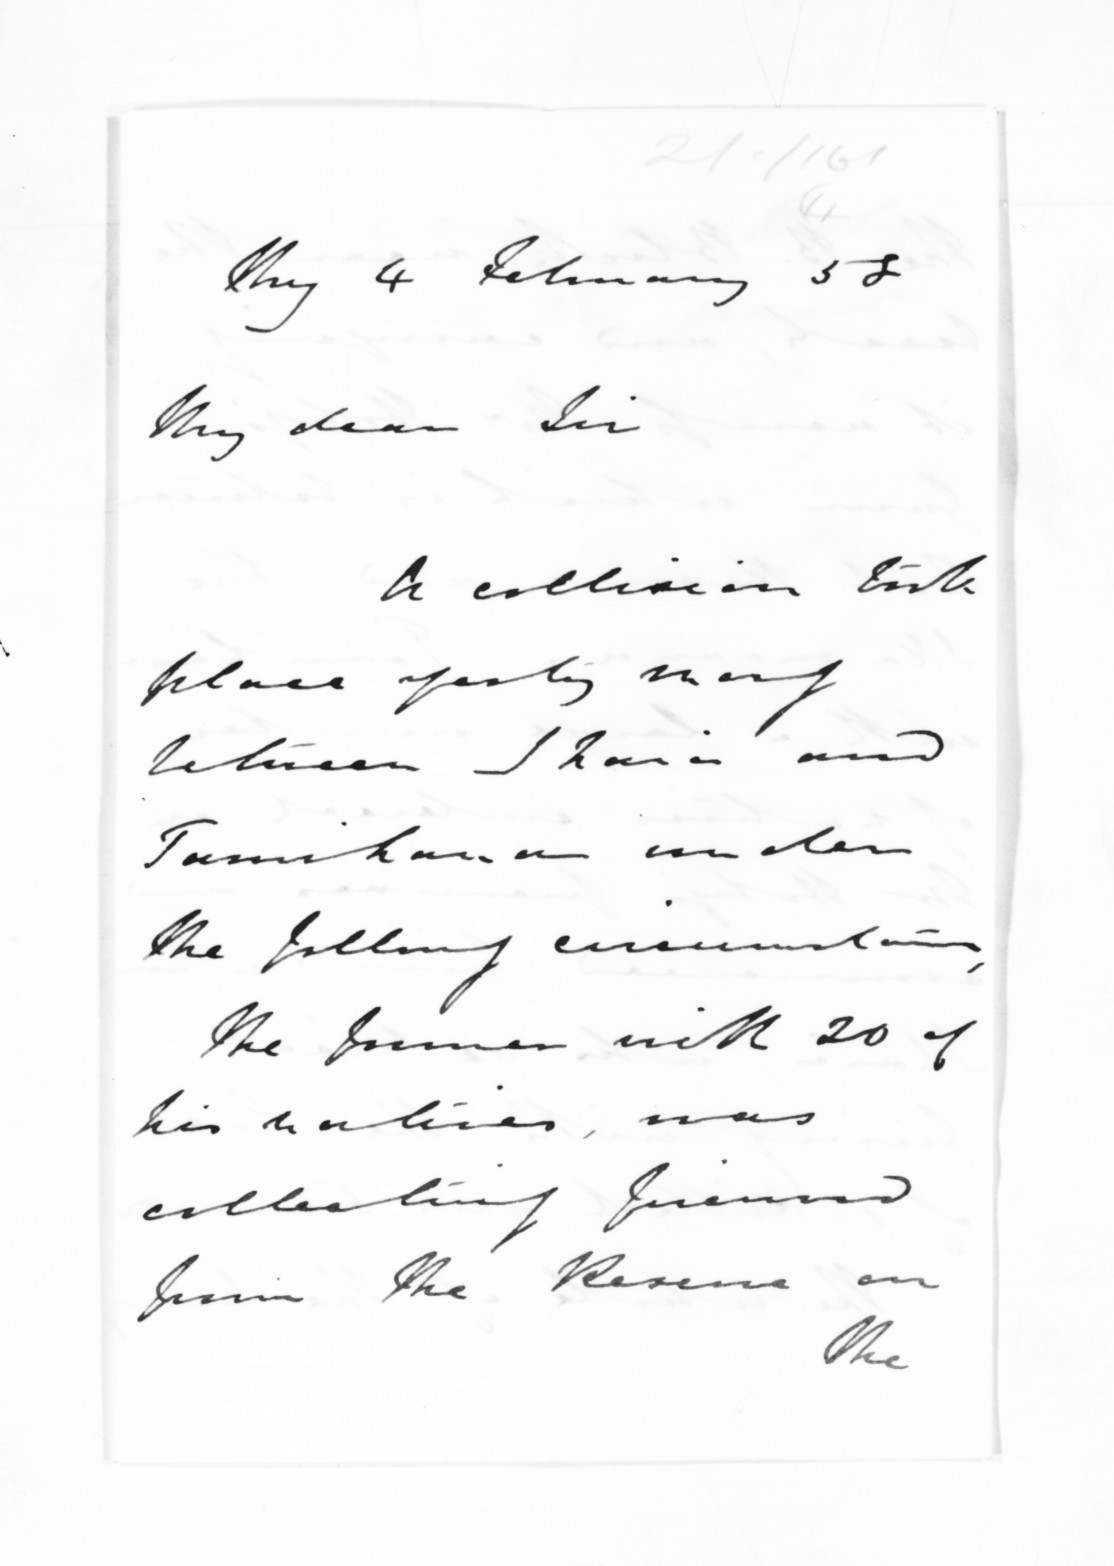 Thy 4 February 58
My dear Sir
A collision took
place yesty morng
between Ihaia and
Tamihana under
the followg circumstances,
The former with 20 of
his natives, was
collecting firewood
from the Reserve on
the